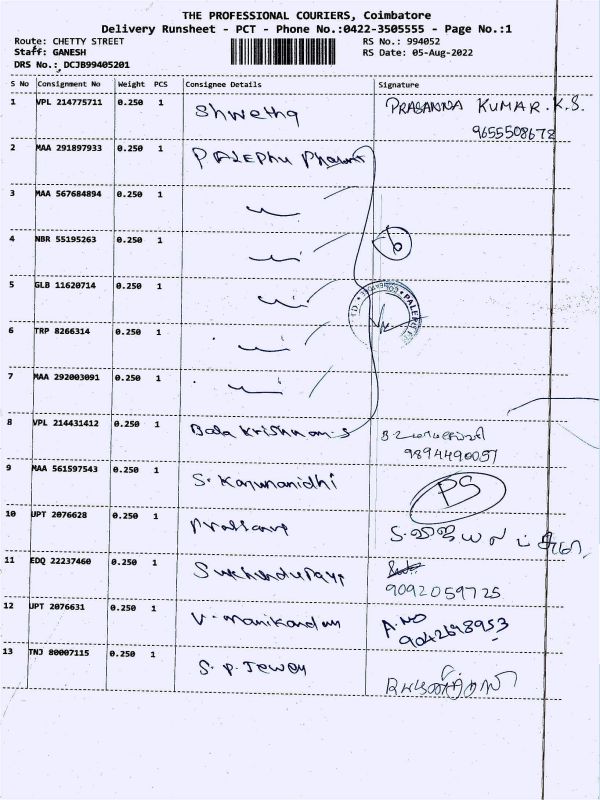 THE PROFESSIONAL COURIERS, Coimbatore
Delivery Runsheet - PCT - Phone No.:0422-3505555 - Page No.:1
Route: CHETTY STREET RS No.: 994052
Staff: GANESH RS Date: 05-Aug-2022
DRS No.: DCJB99405201
S No Consignment No Weight PCS Consignee Details Signature
1 VPL 214775711 0.250 1 Shwetha PRASANNA KUMAR.K.S.
9655508672
2 MAA 291897933 0.250 1
3 MAA 567684894 0.250 1
4 NBR 55195263 0.250 1
5 GLB 11620714 0.250 1
6 TRP 8266314 0.250 1
7 MAA 292003091 0.250 1
8 VPL 214431412 0.250 1 Bala Krishnan.S
9894490057
9 MAA 561597543 0.250 1 S. Karunanidhi PS
10 UPT 2076628 0.250 1
11 EDQ 22237460 0.250 1
9092059725
12 UPT 2076631 0.250 1 V. manikandan A.NO
9042698953
13 TNJ 80007115 0.250 1 S. P.